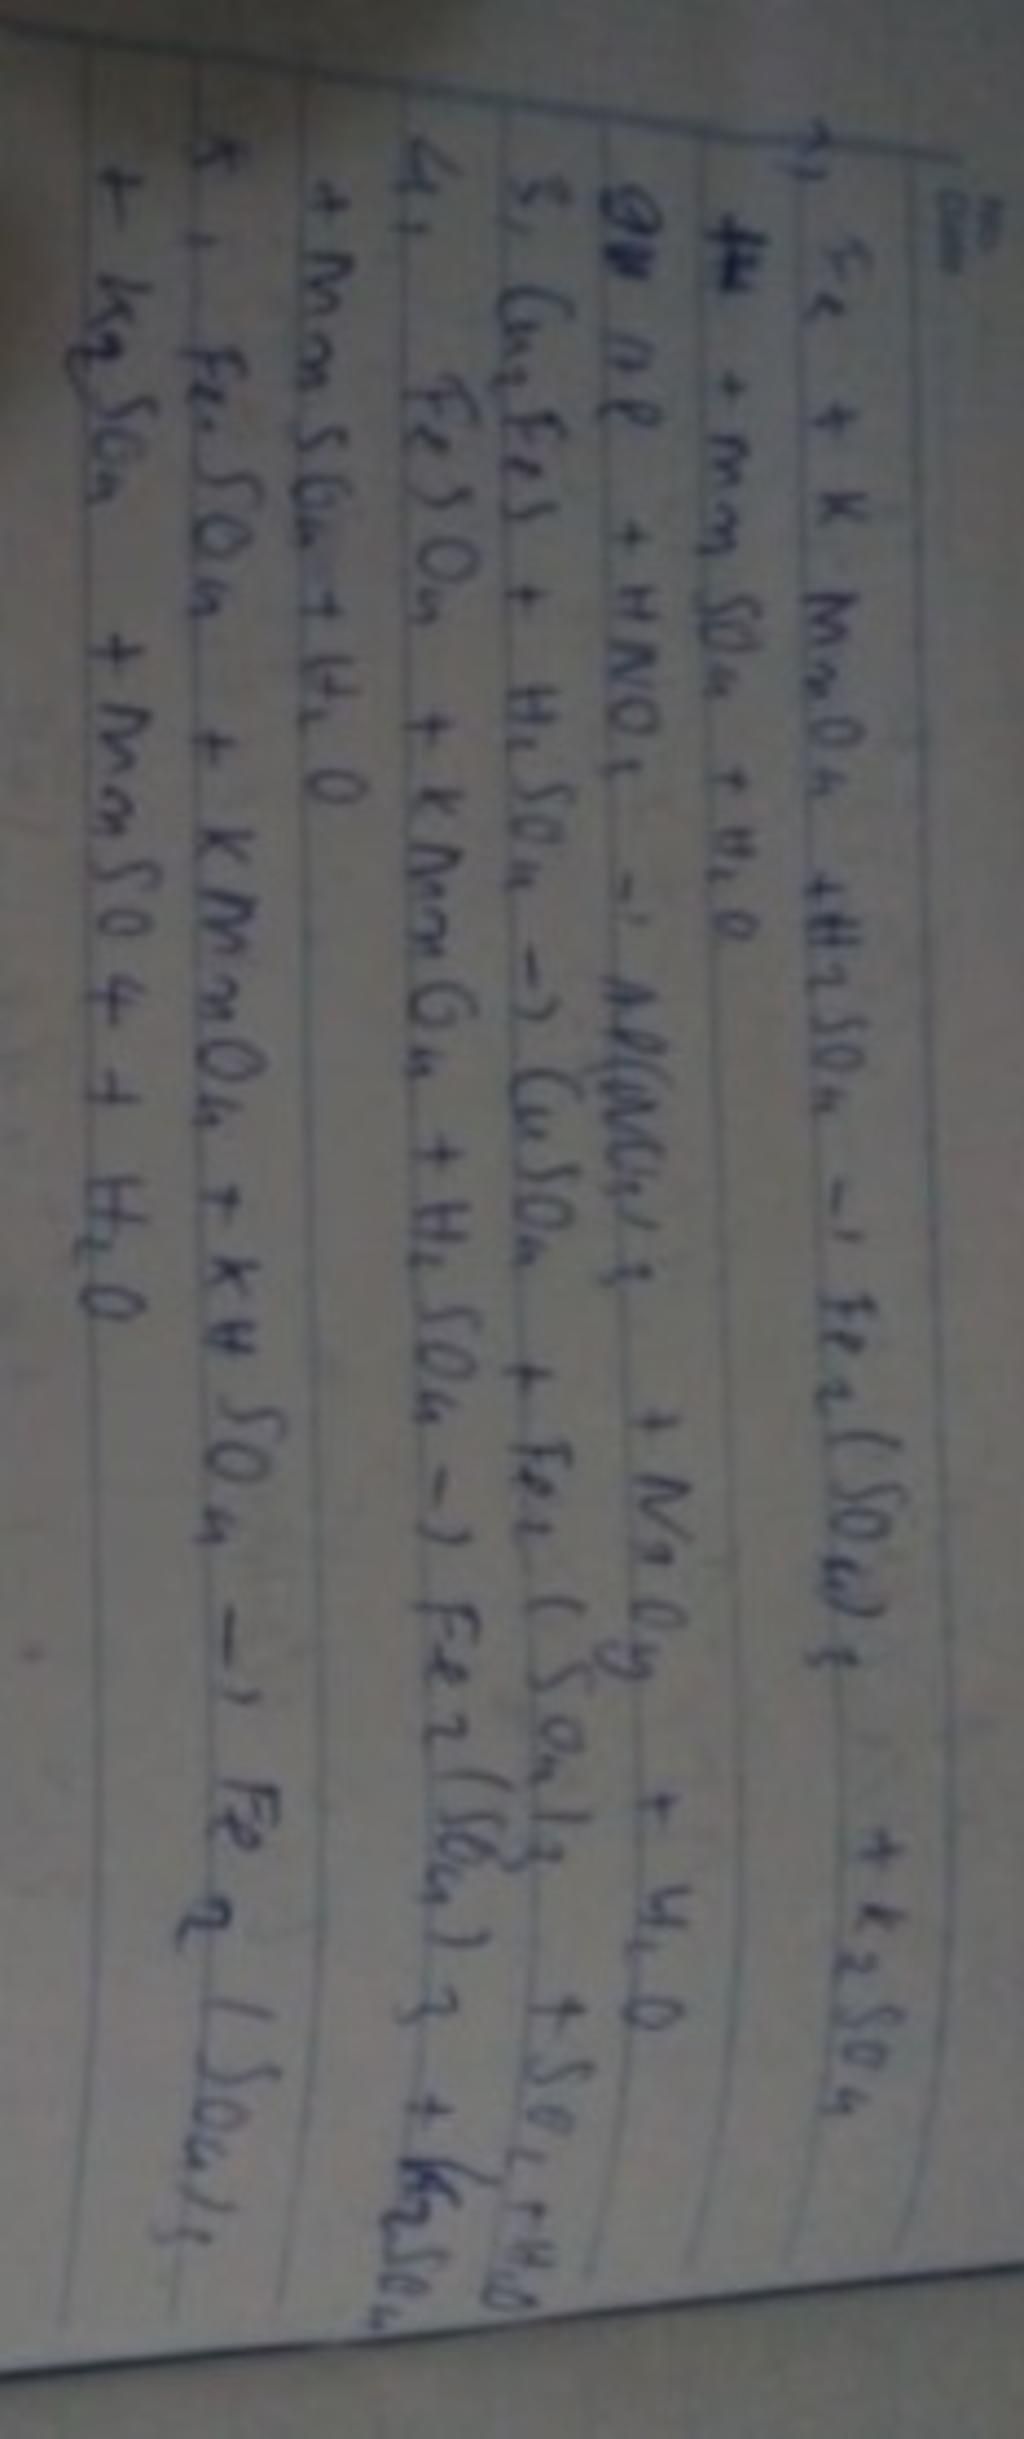 1, Fe + KMnO4 + H2SO4 -> Fe2(SO4)3 + K2SO4
+ MnSO4 + H2O
Al + HNO3 -> Al(NO3)3 + NxOy + H2O
3, Cu2FeS + H2SO4 -> CuSO4 + Fe2(SO4)3 + SO2 + H2O
4, FeSO4 + KMnO4 + H2SO4 -> Fe2(SO4)3 + K2SO4
+ MnSO4 + H2O
5, FeSO4 + KMnO4 + KHSO4 -> Fe2(SO4)3
+ K2SO4 + MnSO4 + H2O